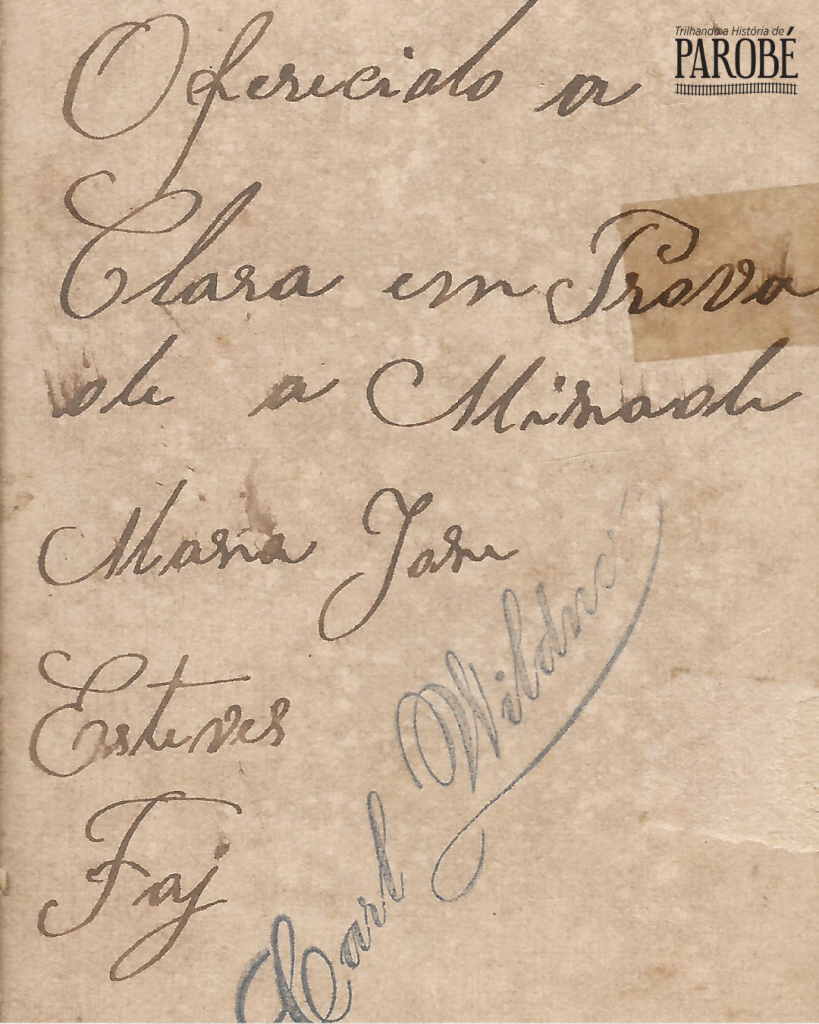 Trilhando a História de
PAROBÉ
Oferecido a
Clara em Prova
de a Misade
Maria Jose
Esteves
Faj
Carl